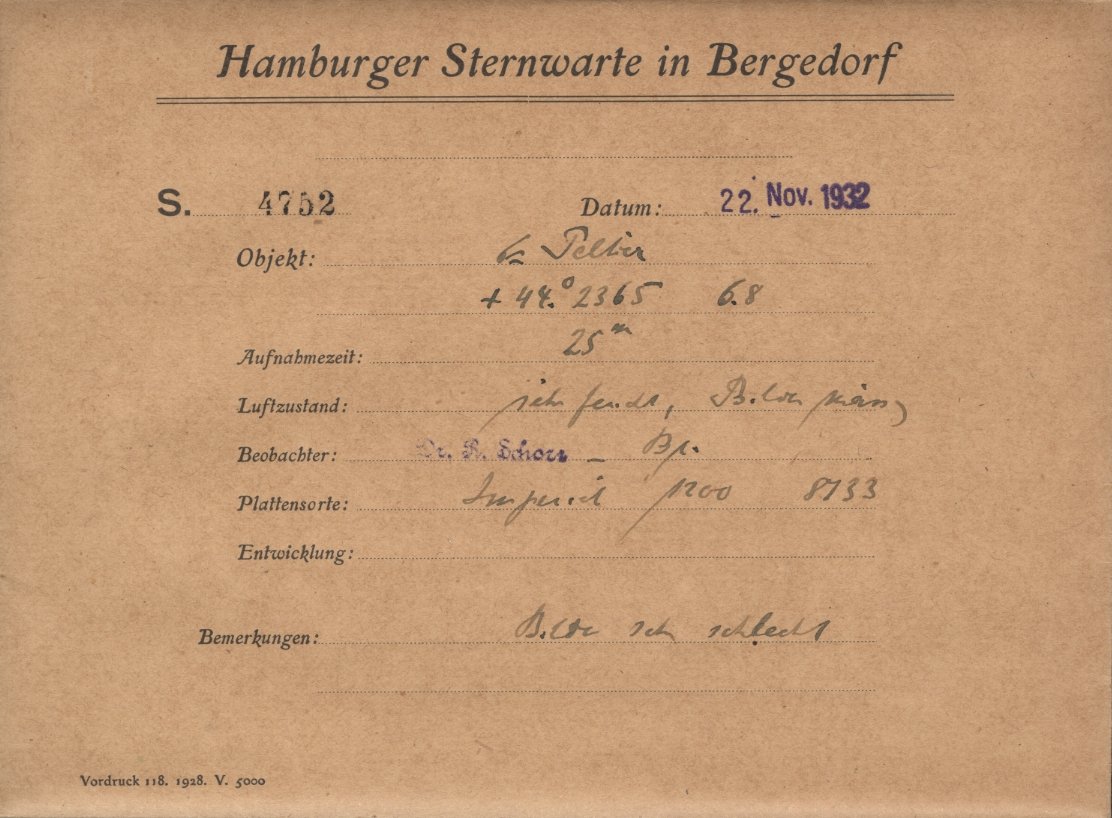 Hamburger Sternwarte in Bergedorf
S. 4752 Datum: 22. Nov. 1932
Objekt: Peltier
+ 44.° 2365 6.8
Aufnahmezeit: 25 m
Luftzustand: sehr feucht, Bilder mäss
Beobachter: Dr. R. Schorr –
Plattensorte: Imperial 1200 8733
Entwicklung:
Bemerkungen: Bilder sehr schlecht
Vordruck 118. 1928. V. 5000